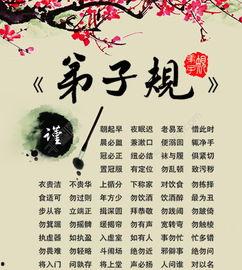 《弟子規》
谨
朝起早 夜眠迟 老易至 惜此时
晨必盥 兼漱口 便溺回 辄净手
冠必正 纽必结 袜与履 俱紧切
置冠服 有定位 勿乱顿 致污秽
衣贵洁 不贵华 上循分 下称家 对饮食 勿拣择
食适可 勿过则 年方少 勿饮酒 饮酒醉 最为丑
步从容 立端正 揖深圆 拜恭敬 勿践阈 勿跛倚
勿箕踞 勿摇髀 缓揭帘 勿有声 宽转弯 勿触棱
执虚器 如执盈 入虚室 如有人 事勿忙 忙多错
勿畏难 勿轻略 斗闹场 绝勿近 邪僻事 绝勿问
将入门 问孰存 将上堂 声必扬 人问谁 对以名